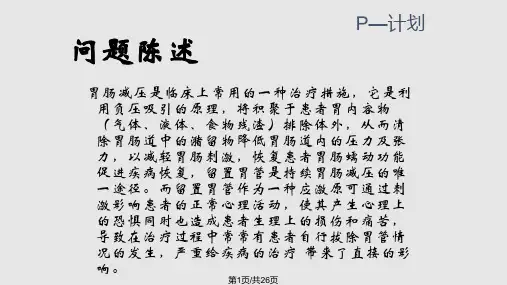 P—计划
问题陈述
胃肠减压是临床上常用的一种治疗措施，它是利
用负压吸引的原理，将积聚于患者胃内容物
（气体、液体、食物残渣）排除体外，从而清
除胃肠道中的潴留物降低胃肠道内的压力及张
力，以减轻胃肠刺激，恢复患者胃肠蠕动功能
促进疾病恢复，留置胃管是持续胃肠减压的唯
一途径。而留置胃管作为一种应激原可通过刺
激影响患者的正常心理活动，使其产生心理上
的恐惧同时也造成患者生理上的损伤和痛苦，
导致在治疗过程中常常有患者自行拔除胃管情
况的发生，严重给疾病的治疗 带来了直接的影
响。
第1页/共26页